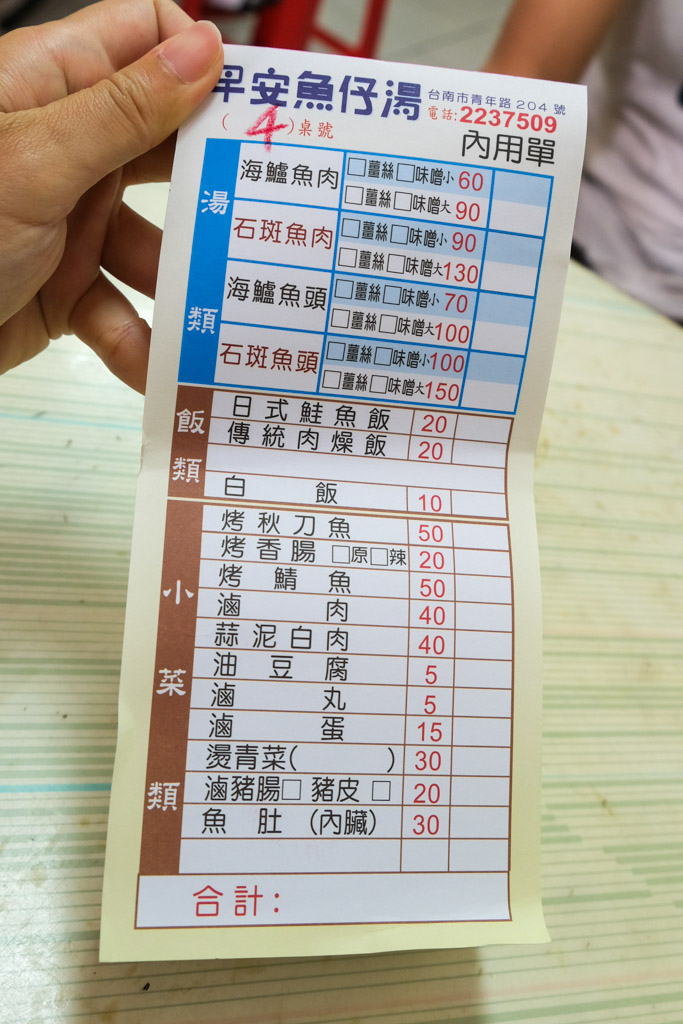 早安魚仔湯
台南市青年路 204 號
電話:2237509
( 4 )桌號
內用單
湯類
海鱸魚肉 □薑絲□味噌小 60
□薑絲□味噌大 90
石斑魚肉 □薑絲□味噌小 90
□薑絲□味噌大 130
海鱸魚頭 □薑絲□味噌小 70
□薑絲□味噌大 100
石斑魚頭 □薑絲□味噌小 100
□薑絲□味噌大 150
飯類
日式鮭魚飯 20
傳統肉燥飯 20
白飯 10
小菜類
烤秋刀魚 50
烤香腸 □原□辣 20
烤鯖魚 50
滷肉 40
蒜泥白肉 40
油豆腐 5
滷丸 5
滷蛋 15
燙青菜( ) 30
滷豬腸□ 豬皮□ 20
魚肚 (內臟) 30
合計: